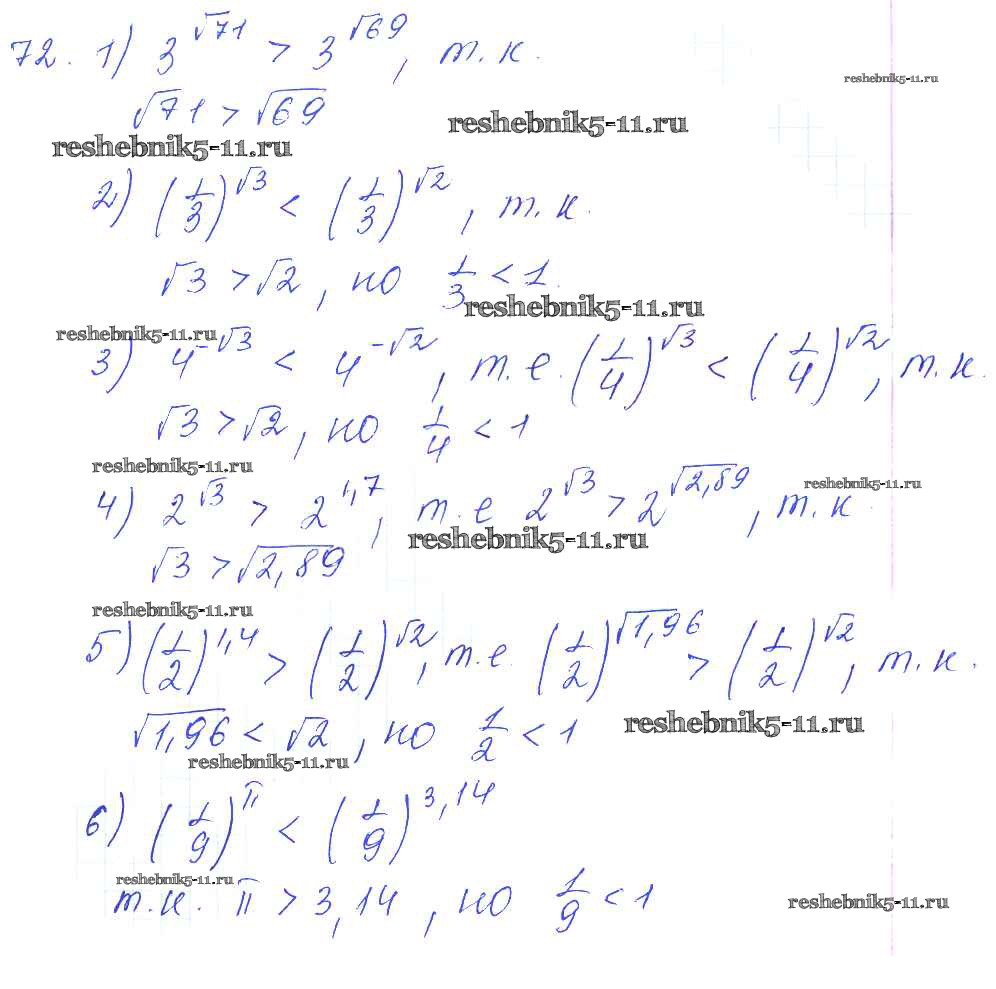 72. 1) 3^√71 > 3^√69, т.к.
reshebnik5-11.ru
√71 > √69
reshebnik5-11.ru
reshebnik5-11.ru
2) (1/3)^√3 < (1/3)^√2, т.к.
√3 > √2, но 1/3 < 1.
reshebnik5-11.ru
reshebnik5-11.ru
3) 4^-√3 < 4^-√2, т.е. (1/4)^√3 < (1/4)^√2, т.к.
√3 > √2, но 1/4 < 1
reshebnik5-11.ru
reshebnik5-11.ru
4) 2^√3 > 2^1,7, т.е 2^√3 > 2^√2,89, т.к.
reshebnik5-11.ru
√3 > √2,89
reshebnik5-11.ru
5) (1/2)^1,4 > (1/2)^√2, т.е. (1/2)^√1,96 > (1/2)^√2, т.к.
√1,96 < √2, но 1/2 < 1
reshebnik5-11.ru
reshebnik5-11.ru
6) (1/9)^π < (1/9)^3,14
reshebnik5-11.ru
т.к. π > 3,14, но 1/9 < 1
reshebnik5-11.ru